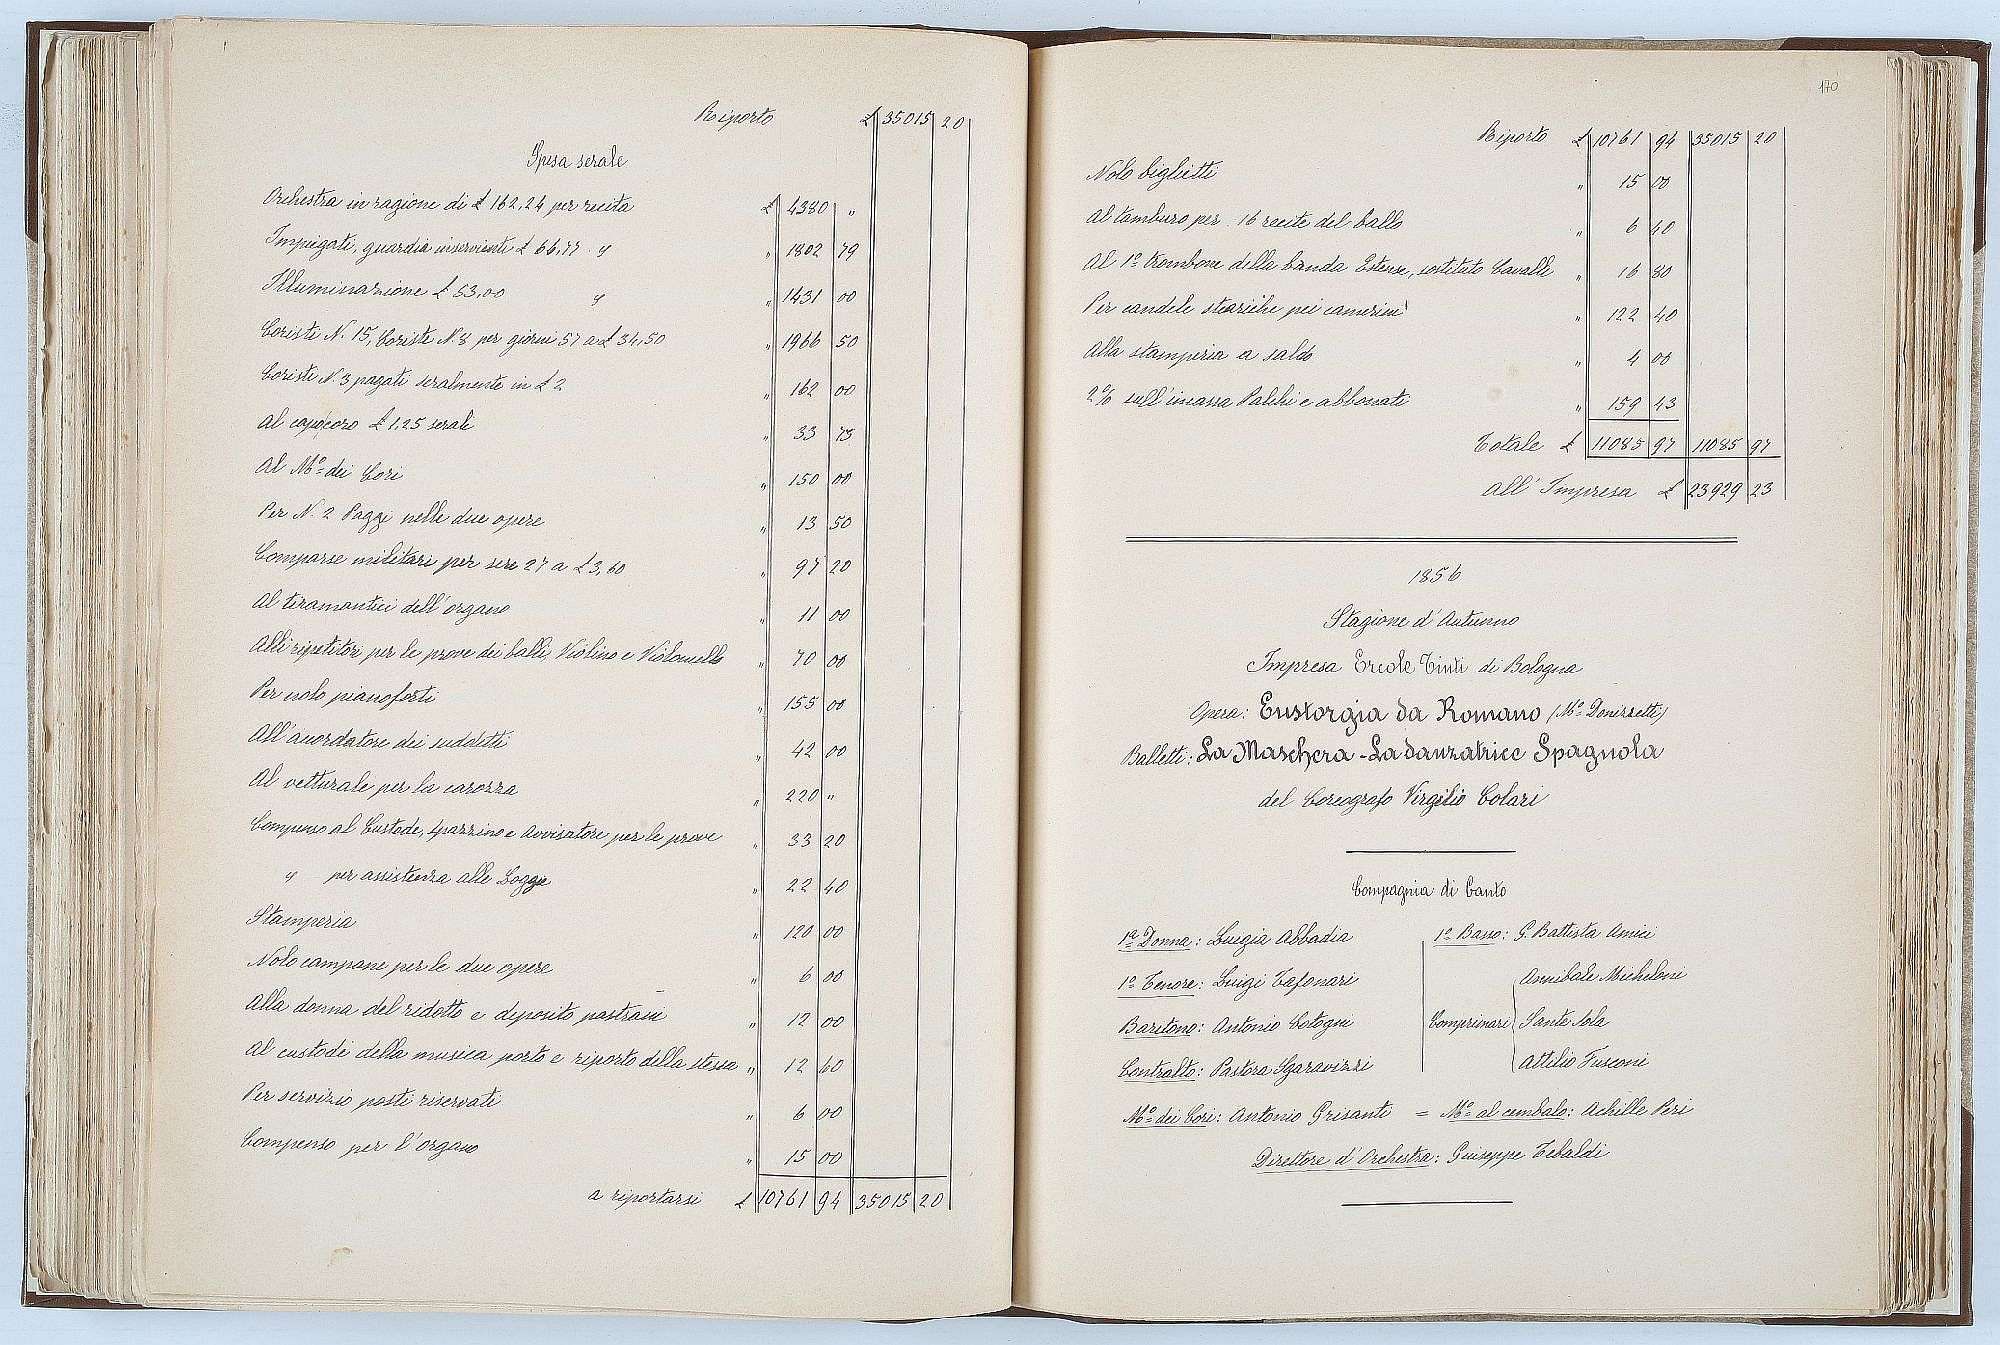 Riporto £ 35015 20
Spesa serale
Orchestra in ragione di £ 162,24 per recita £ 4380 "
Impiegati, guardia inservienti £ 66,77 " " 1802 79
Illuminazione £ 53,00 " " 1431 00
Coristi N. 15, Coriste N. 8 per giorni 57 a £ 34,50 " 1966 50
Coristi N. 3 pagati seralmente in £ 2 " 162 00
Al capocoro £ 1,25 serali " 33 75
Al Mo. dei Cori " 150 00
Per N. 2 Paggi nelle due opere " 13 50
Comparse militari per sere 27 a £ 3,60 " 97 20
Al tiramantici dell'organo " 11 00
Alli ripetitori per le prove dei balli, Violino e Violoncello " 70 00
Per nolo pianoforti " 155 00
All'accordatore dei suddetti " 42 00
Al vetturale per la carozza " 220 "
Compenso al Custode, Spazzino e Avvisatore per le prove " 33 20
" per assistenza alle Loggie " 22 40
Stamperia " 120 00
Nolo campane per le due opere " 6 00
Alla donna del ridotto e deposito pastrani " 12 00
Al custode della musica porto e riporto della stessa " 12 60
Per servizio posti riservati " 6 00
Compenso per l'organo " 15 00
a riportarsi £ 10761 94 35015 20
170
Riporto £ 10761 94 35015 20
Nolo biglietti " 15 00
Al tamburo per 16 recite del ballo " 6 40
Al 1o trombone della banda Estense, sostituto Cavalli " 16 80
Per candele steariche pei camerini " 122 40
Alla stamperia a saldo " 4 00
2% sull'incasso Palchi e abbonati " 159 43
Totale £ 11085 97 11085 97
All'Impresa £ 23929 23
1856
Stagione d'Autunno
Impresa Ercole Tinti di Bologna
Opera: Eustorgia da Romano (Mo. Donizzetti)
Balletti: La Maschera - La danzatrice Spagnola
del Coreografo Virgilio Colari
Compagnia di Canto
1a Donna: Luigia Abbadia
1o Tenore: Luigi Tafonari
Baritono: Antonio Cotogni
Contralto: Pastora Sgaravizzi
1o Basso: G. Battista Amici
Comprimari
Annibale Micheloni
Sante Sola
Attilio Fusconi
Mo. dei Cori: Antonio Grisanti = Mo. al cembalo: Achille Peri
Direttore d'Orchestra: Giuseppe Tebaldi